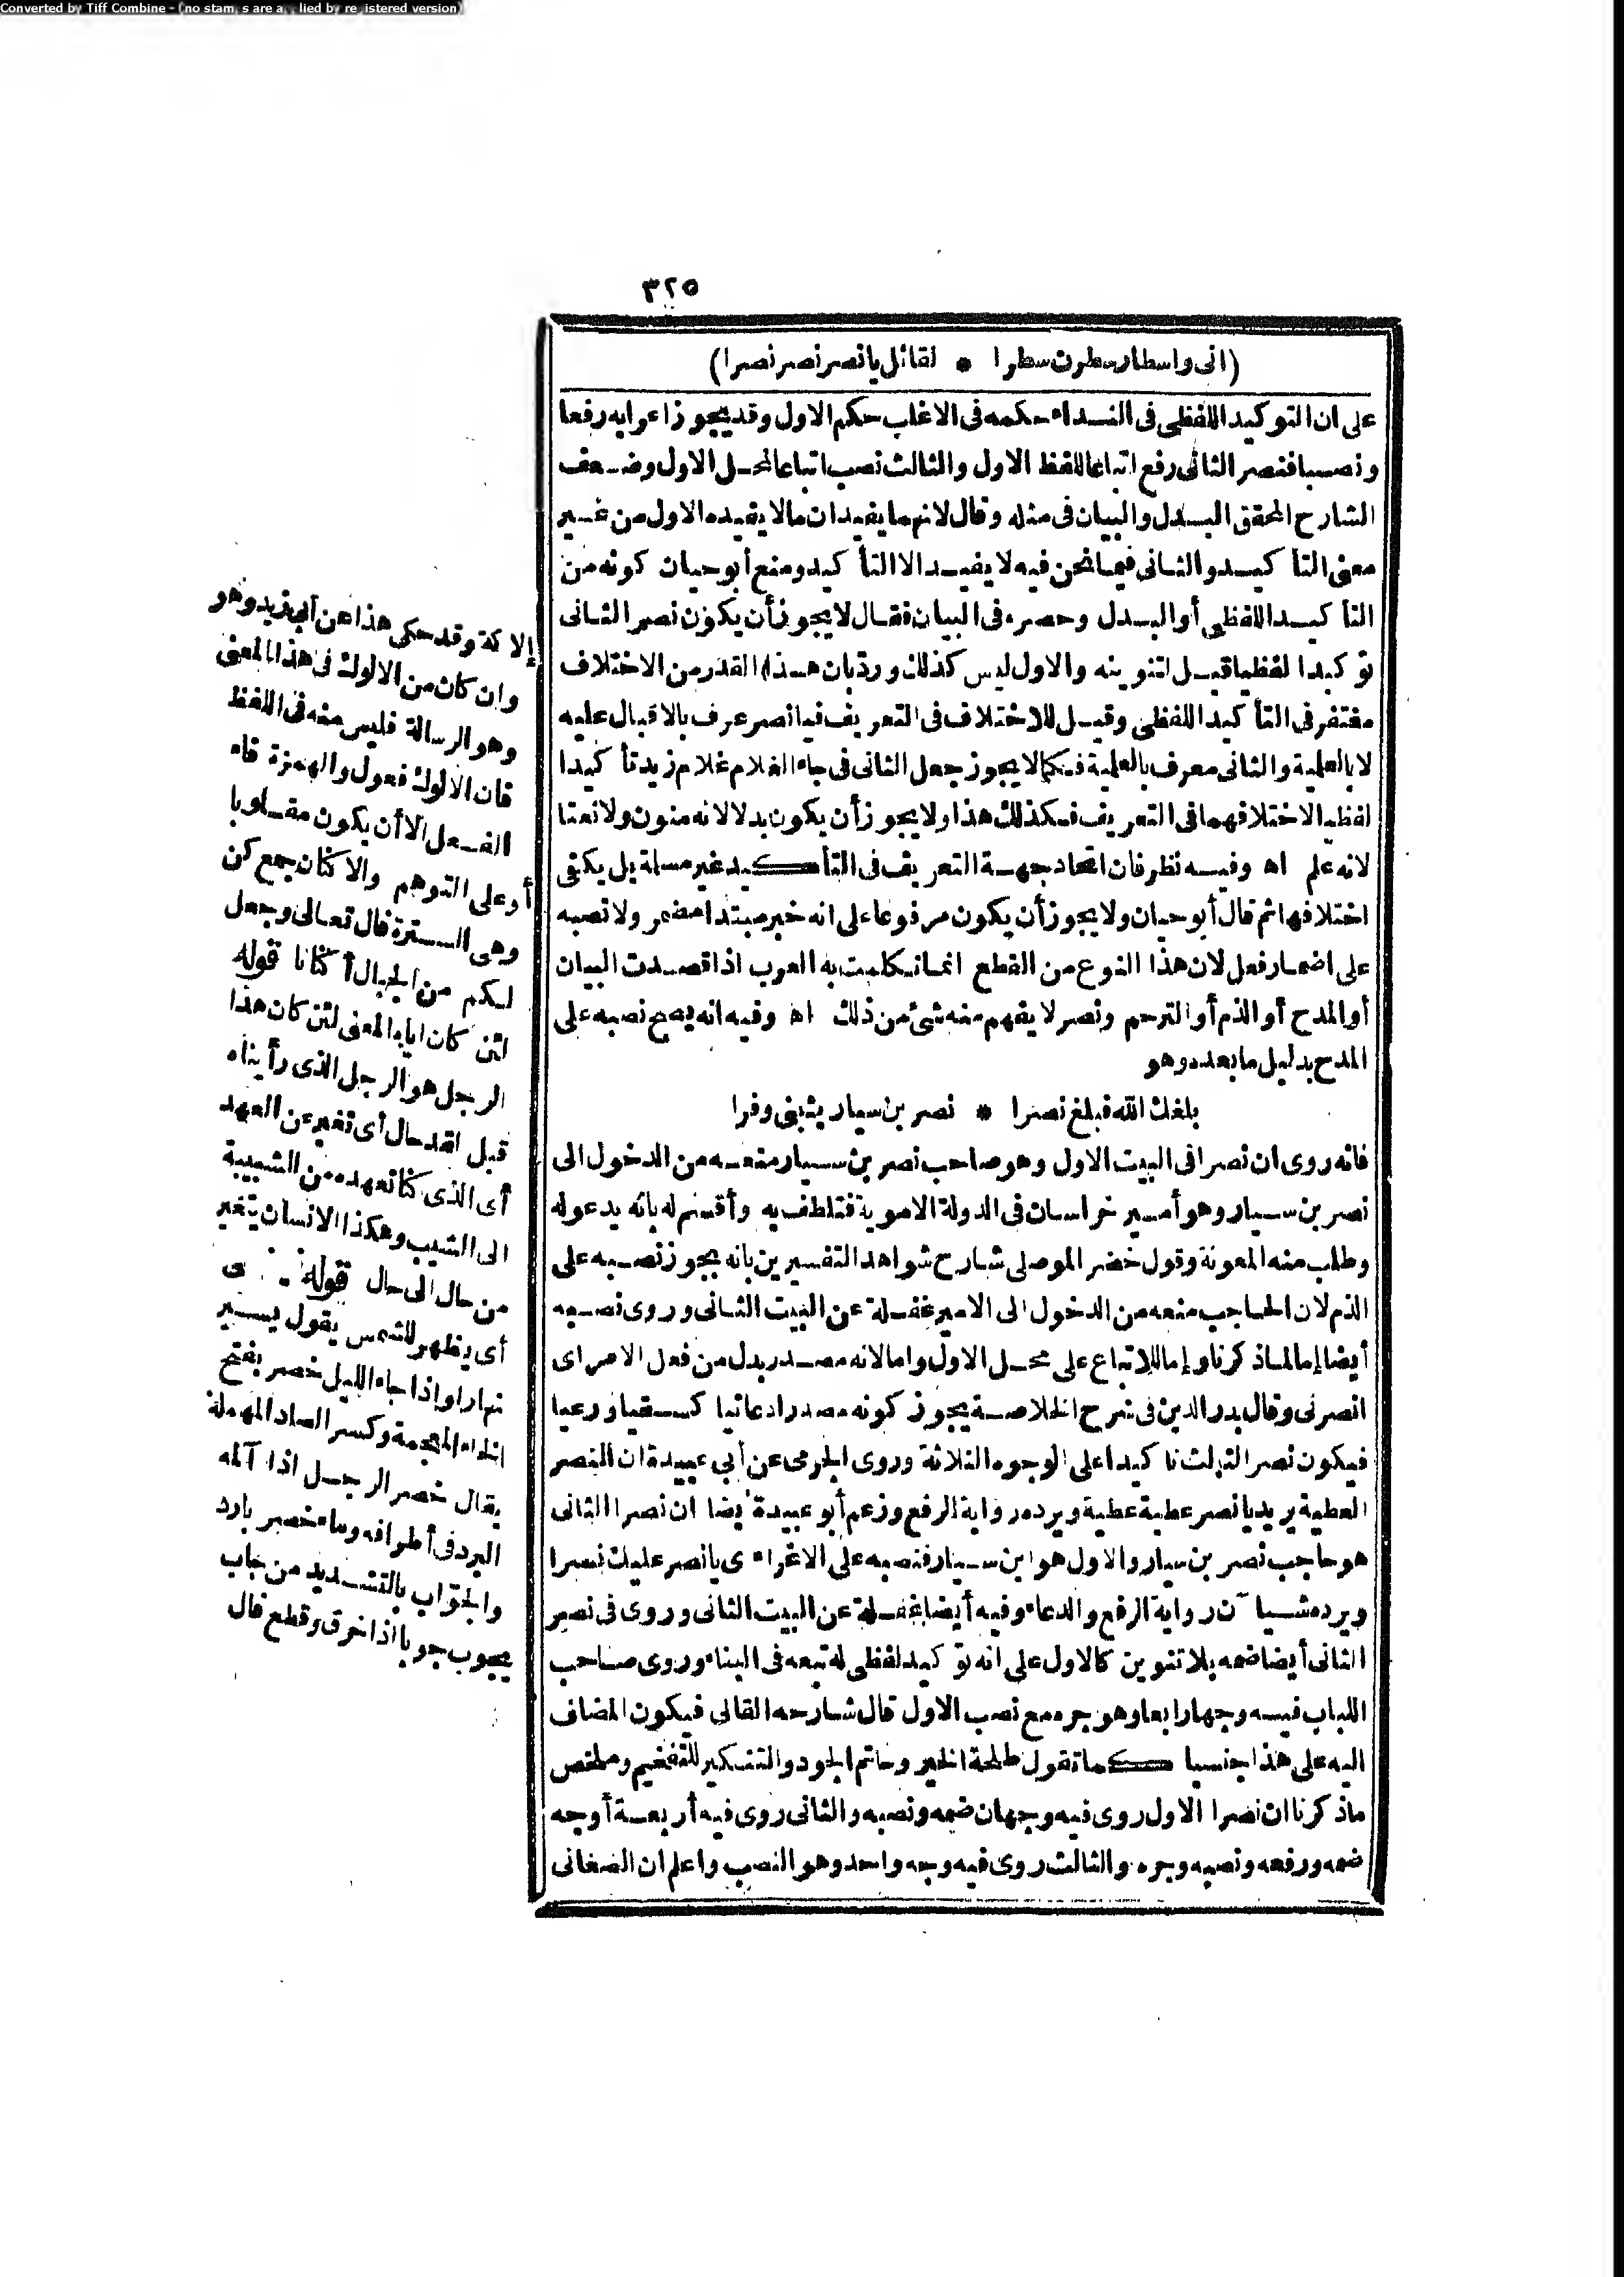 Converted by Tiff Combine - (no stamps are applied by registered version)
٣٢٥
(انى واسطار سطرن سطرا * لقائل يا نصر نصر نصرا)
على ان التوكيد اللفظى فى النداء حكمه فى الاغلب حكم الاول وقد يجوز اعرابه رفعا
ونصبا فنصر الثانى رفع اتباعا للفظ الاول والثالث نصب اتباعا لمحل الاول وضعف
الشارح المحقق البدل والبيان فى مثله وقال لانهما يفيدان مالا يفيده الاول من غير
معنى التأكيد والثانى فيما نحن فيه لا يفيد الا التأكيد ومنع أبو حيان كونه من
التأكيد اللفظى أو البدل وحصره فى البيان فقال لا يجوز أن يكون نصر الثانى
توكيدا لفظيا قيل لتنوينه والاول ليس كذلك وردّ بان هذا القدر من الاختلاف
مغتفر فى التأكيد اللفظى وقيل للاختلاف فى التعريف فيا نصر عرف بالاقبال عليه
لا بالعلمية والثانى معرف بالعلمية فكما لا يجوز جعل الثانى فى جاء الغلام غلام زيد تأكيدا
لفظيا لاختلافهما فى التعريف فكذلك هذا ولا يجوز أن يكون بدلا لانه منون ولا نعتا
لانه علم اه وفيه نظر فان اتحاد جهة التعريف فى التأكيد غير مسلمة بل يكفى
اختلافها ثم قال أبو حيان ولا يجوز أن يكون مرفوعا على انه خبر مبتدا مضمر ولا نصبه
على اضمار فعل لان هذا النوع من القطع انما تكلمت به العرب اذا قصدت البيان
أو المدح أو الذم أو الترحم ونصر لا يفهم منه شئ من ذلك اه وفيه انه يصح نصبه على
المدح بدليل ما بعده وهو
بلغك الله فبلغ نصرا * نصر بن سيار يثبنى وفرا
فانه روى ان نصرا فى البيت الاول وهو صاحب نصر بن سيار منعه من الدخول الى
نصر بن سيار وهو أمير خراسان فى الدولة الاموية فتلطف به وأقسم له بانه يدعو له
وطلب منه المعونة وقول خضر الموصلى شارح شواهد التفسيرين بانه يجوز نصبه على
الذم لان الحاجب منعه من الدخول الى الامير غفلة عن البيت الثانى وروى نصبه
أيضا إما لماذكرنا وإما للاتباع على محل الاول واما لانه مصدر بدل من فعل الامر اى
انصرنى وقال بدر الدين فى شرح الخلاصة يجوز كونه مصدرا دعائيا كسقيا ورعيا
فيكون نصر الثالث تاكيدا على الوجوه الثلاثة وروى الجرمى عن أبى عبيدة ان النصر
العطية يريد يا نصر عطية عطية ويرده رواية الرفع وزعم أبو عبيدة أيضا ان نصرا الثانى
هو حاجب نصر بن سيار والاول هو ابن سيار فنصبه على الاغراء ى يا نصر عليك نصرا
ويرده شيا ن رواية الرفع والدعاء وفيه أيضا غفلة عن البيت الثانى وروى فى نصر
الثانى أيضا ضمه بلا تنوين كالاول على انه توكيد لفظى له تبعه فى البناء وروى صاحب
اللباب فيه وجها رابعا وهو جره مع نصب الاول قال شارحه القالى فيكون المضاف
اليه على هذا جنسيا كما تقول طلحة الخير وحاتم الجود والتنكير للتفخيم وملخص
ماذكرنا ان نصرا الاول روى فيه وجهان ضمه ونصبه والثانى روى فيه أربعة أوجه
ضمه ورفعه ونصبه وجره والثالث روى فيه وجه واحد وهو النصب واعلم ان الصغانى
إلا كة وقد حكى هذا عن أبى زيد وهو
وان كان من الالوك فى هذا المعنى
وهو الرسالة فليس منه فى اللفظ
فان الالوك فعول والهمزة فاء
الفعل الا أن يكون مقلوبا
أو على التوهم والاكنان جمع كن
وهى السترة قال تعالى وجعل
لكم من الجبال أكنانا قوله
لئن كان اياه المعنى لئن كان هذا
الرجل هو الرجل الذى رأيناه
قبل لقد حال أى تغير عن العهد
أى الذى كنا نعهده من الشبيبة
الى الشيب وهكذا الانسان يتغير
من حال الى حال قوله
أى يظهر للشمس يقول يسير
نهارا واذا جاء الليل خصر بفتح
الخاء المعجمة وكسر الصاد المهملة
يقال خصر الرجل اذا آلمه
البرد فى أطرافه وماء خصر بارد
والجوّاب بالتشديد من جاب
يجوب جوبا اذا خرق وقطع قال